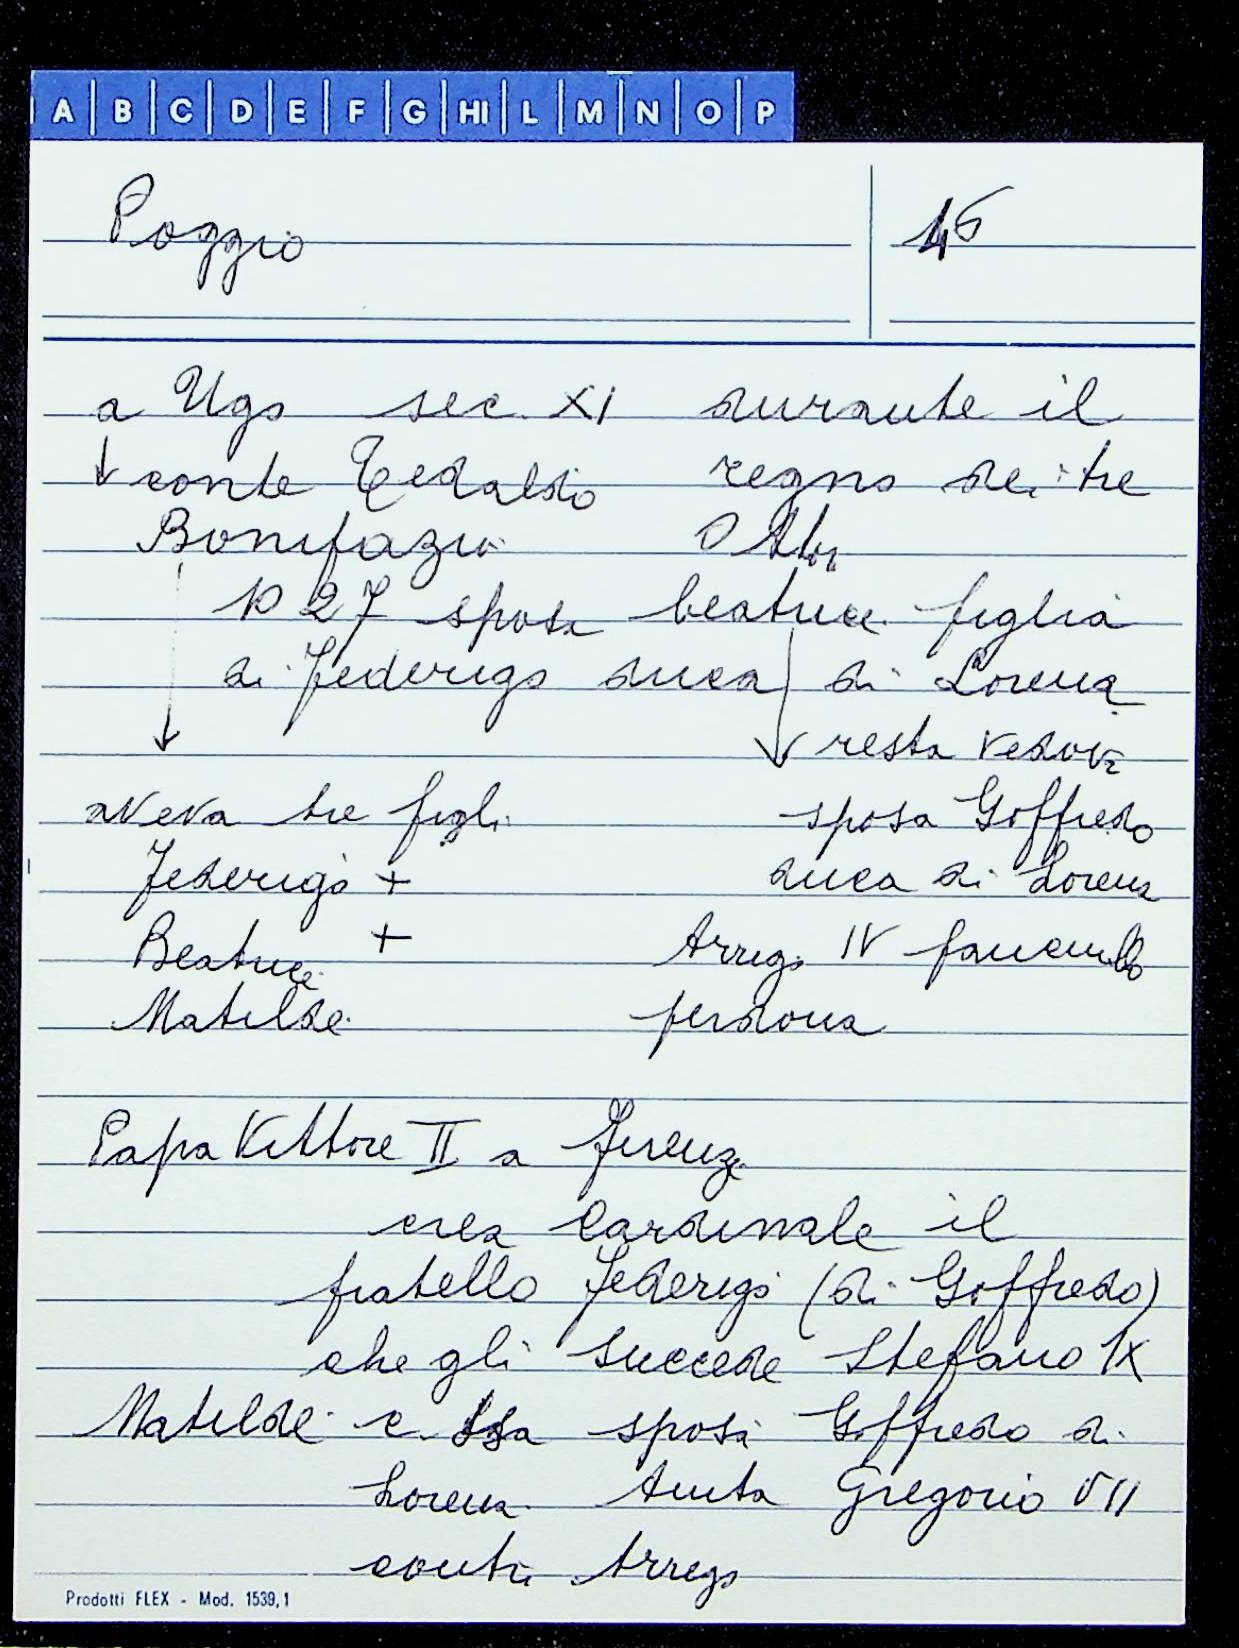 A B C D E F G HI L M N O P
Poggio 15
a Ugo sec. XI durante il
conte Tedaldo regno dei tre
Bonifazio Ottoni
1027 sposa beatrice figlia
di Federigo duca di Lorena
resta vedova
aveva tre figli sposa Goffredo
Federigo + duca di Lorena
Beatrice + Arrigo IV fanciullo
Matilde perdona
Papa Vittore II a Firenze
crea Cardinale il
fratello Federigo (di Goffredo)
che gli succede Stefano IX
Matilde sposa Goffredo di
Lorena. Aiuta Gregorio VII
contro Arrigo
Prodotti FLEX - Mod. 1539,1